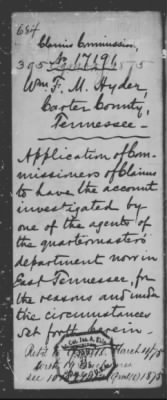 684
Claims Commission,
No. 17196
Wm F. M. Hyder,
Carter County,
Tennessee.
Application of Com-
missioners of Claims
to have the account
investigated by
one of the agents of
the quartermasters'
department now in
East Tennessee, for
the reasons and under
the circumstances
set forth herein.
March 1875